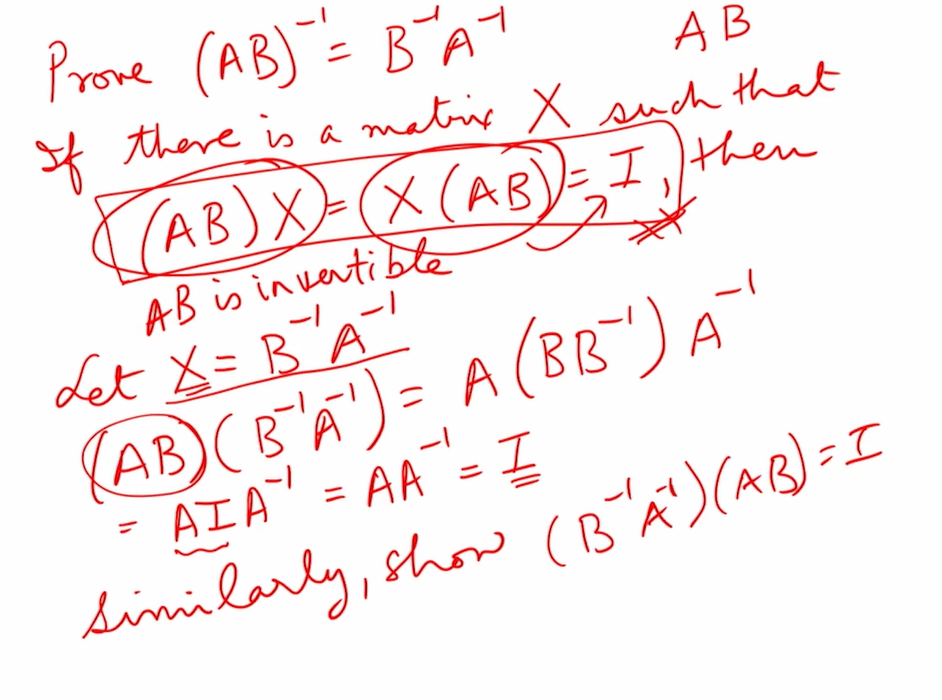 Prove (AB)⁻¹ = B⁻¹A⁻¹ AB
If there is a matrix X such that
(AB)X = X(AB) = I, then
AB is invertible
Let X = B⁻¹A⁻¹
(AB)(B⁻¹A⁻¹) = A(BB⁻¹)A⁻¹
= AIA⁻¹ = AA⁻¹ = I
similarly, show (B⁻¹A⁻¹)(AB) = I